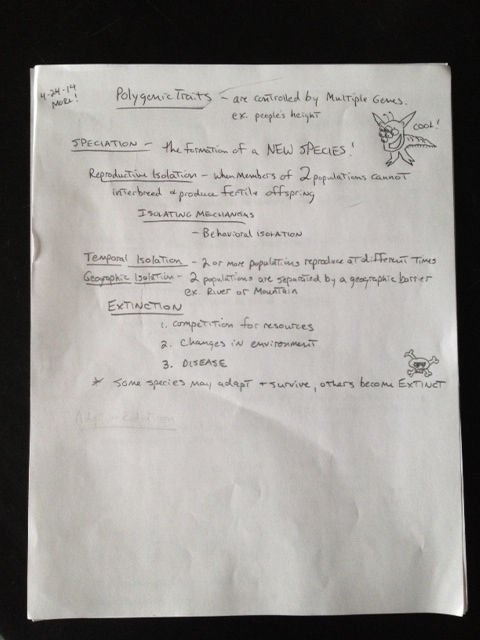 4-24-14
MORE!
Polygenic Traits - are controlled by Multiple Genes.
ex. people's height
COOL!
SPECIATION - the formation of a NEW SPECIES!
Reproductive Isolation - when members of 2 populations cannot
interbreed & produce fertile offspring
ISOLATING MECHANISMS
- Behavioral ISOLATION
Temporal Isolation - 2 or more populations reproduce at different times
Geographic Isolation - 2 populations are separated by a geographic barrier
ex. River or Mountain
EXTINCTION
1. competition for resources
2. changes in environment
3. DISEASE
* Some species may adapt + survive, others become EXTINCT